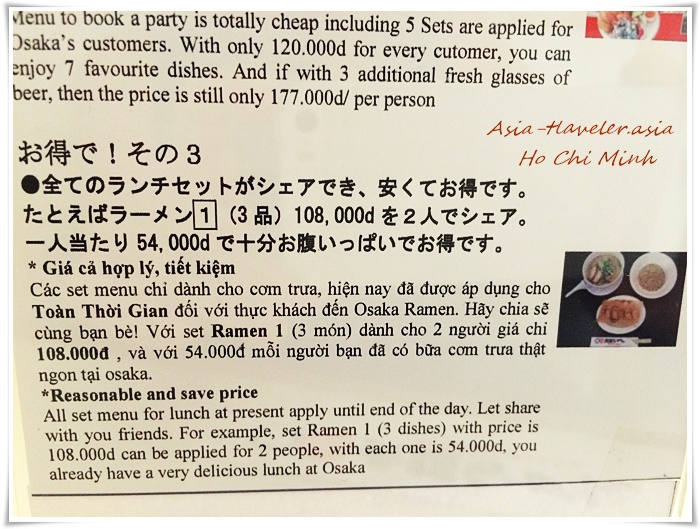 Menu to book a party is totally cheap including 5 Sets are applied for
Osaka's customers. With only 120.000d for every cutomer, you can
enjoy 7 favourite dishes. And if with 3 additional fresh glasses of
beer, then the price is still only 177.000d/ per person
Asia-Haveler.asia
Ho Chi Minh
お得で！その３
●全てのランチセットがシェアでき、安くてお得です。
たとえばラーメン1（３品）108,000dを２人でシェア。
一人当たり54,000dで十分お腹いっぱいでお得です。
* Giá cả hợp lý, tiết kiệm
Các set menu chỉ dành cho cơm trưa, hiện nay đã được áp dụng cho
Toàn Thời Gian đối với thực khách đến Osaka Ramen. Hãy chia sẽ
cùng bạn bè! Với set Ramen 1 (3 món) dành cho 2 người giá chỉ
108.000đ , và với 54.000đ mỗi người bạn đã có bữa cơm trưa thật
ngon tại osaka.
*Reasonable and save price
All set menu for lunch at present apply until end of the day. Let share
with you friends. For example, set Ramen 1 (3 dishes) with price is
108.000d can be applied for 2 people, with each one is 54.000d, you
already have a very delicious lunch at Osaka